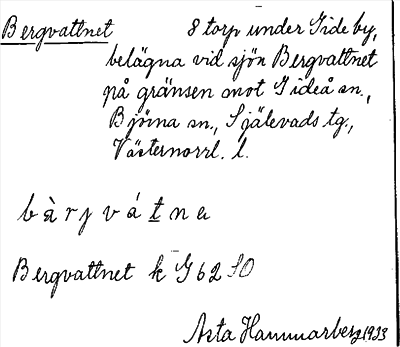 Bergvattnet 8 torp under Gideby,
belägna vid sjön Bergvattnet
på gränsen mot Gideå sn.,
Björna sn., Själevads tg.,
Västernorrl. l.
bàrjvátne
Bergvattnet k G 62 SO
Asta Hammarberg 1933